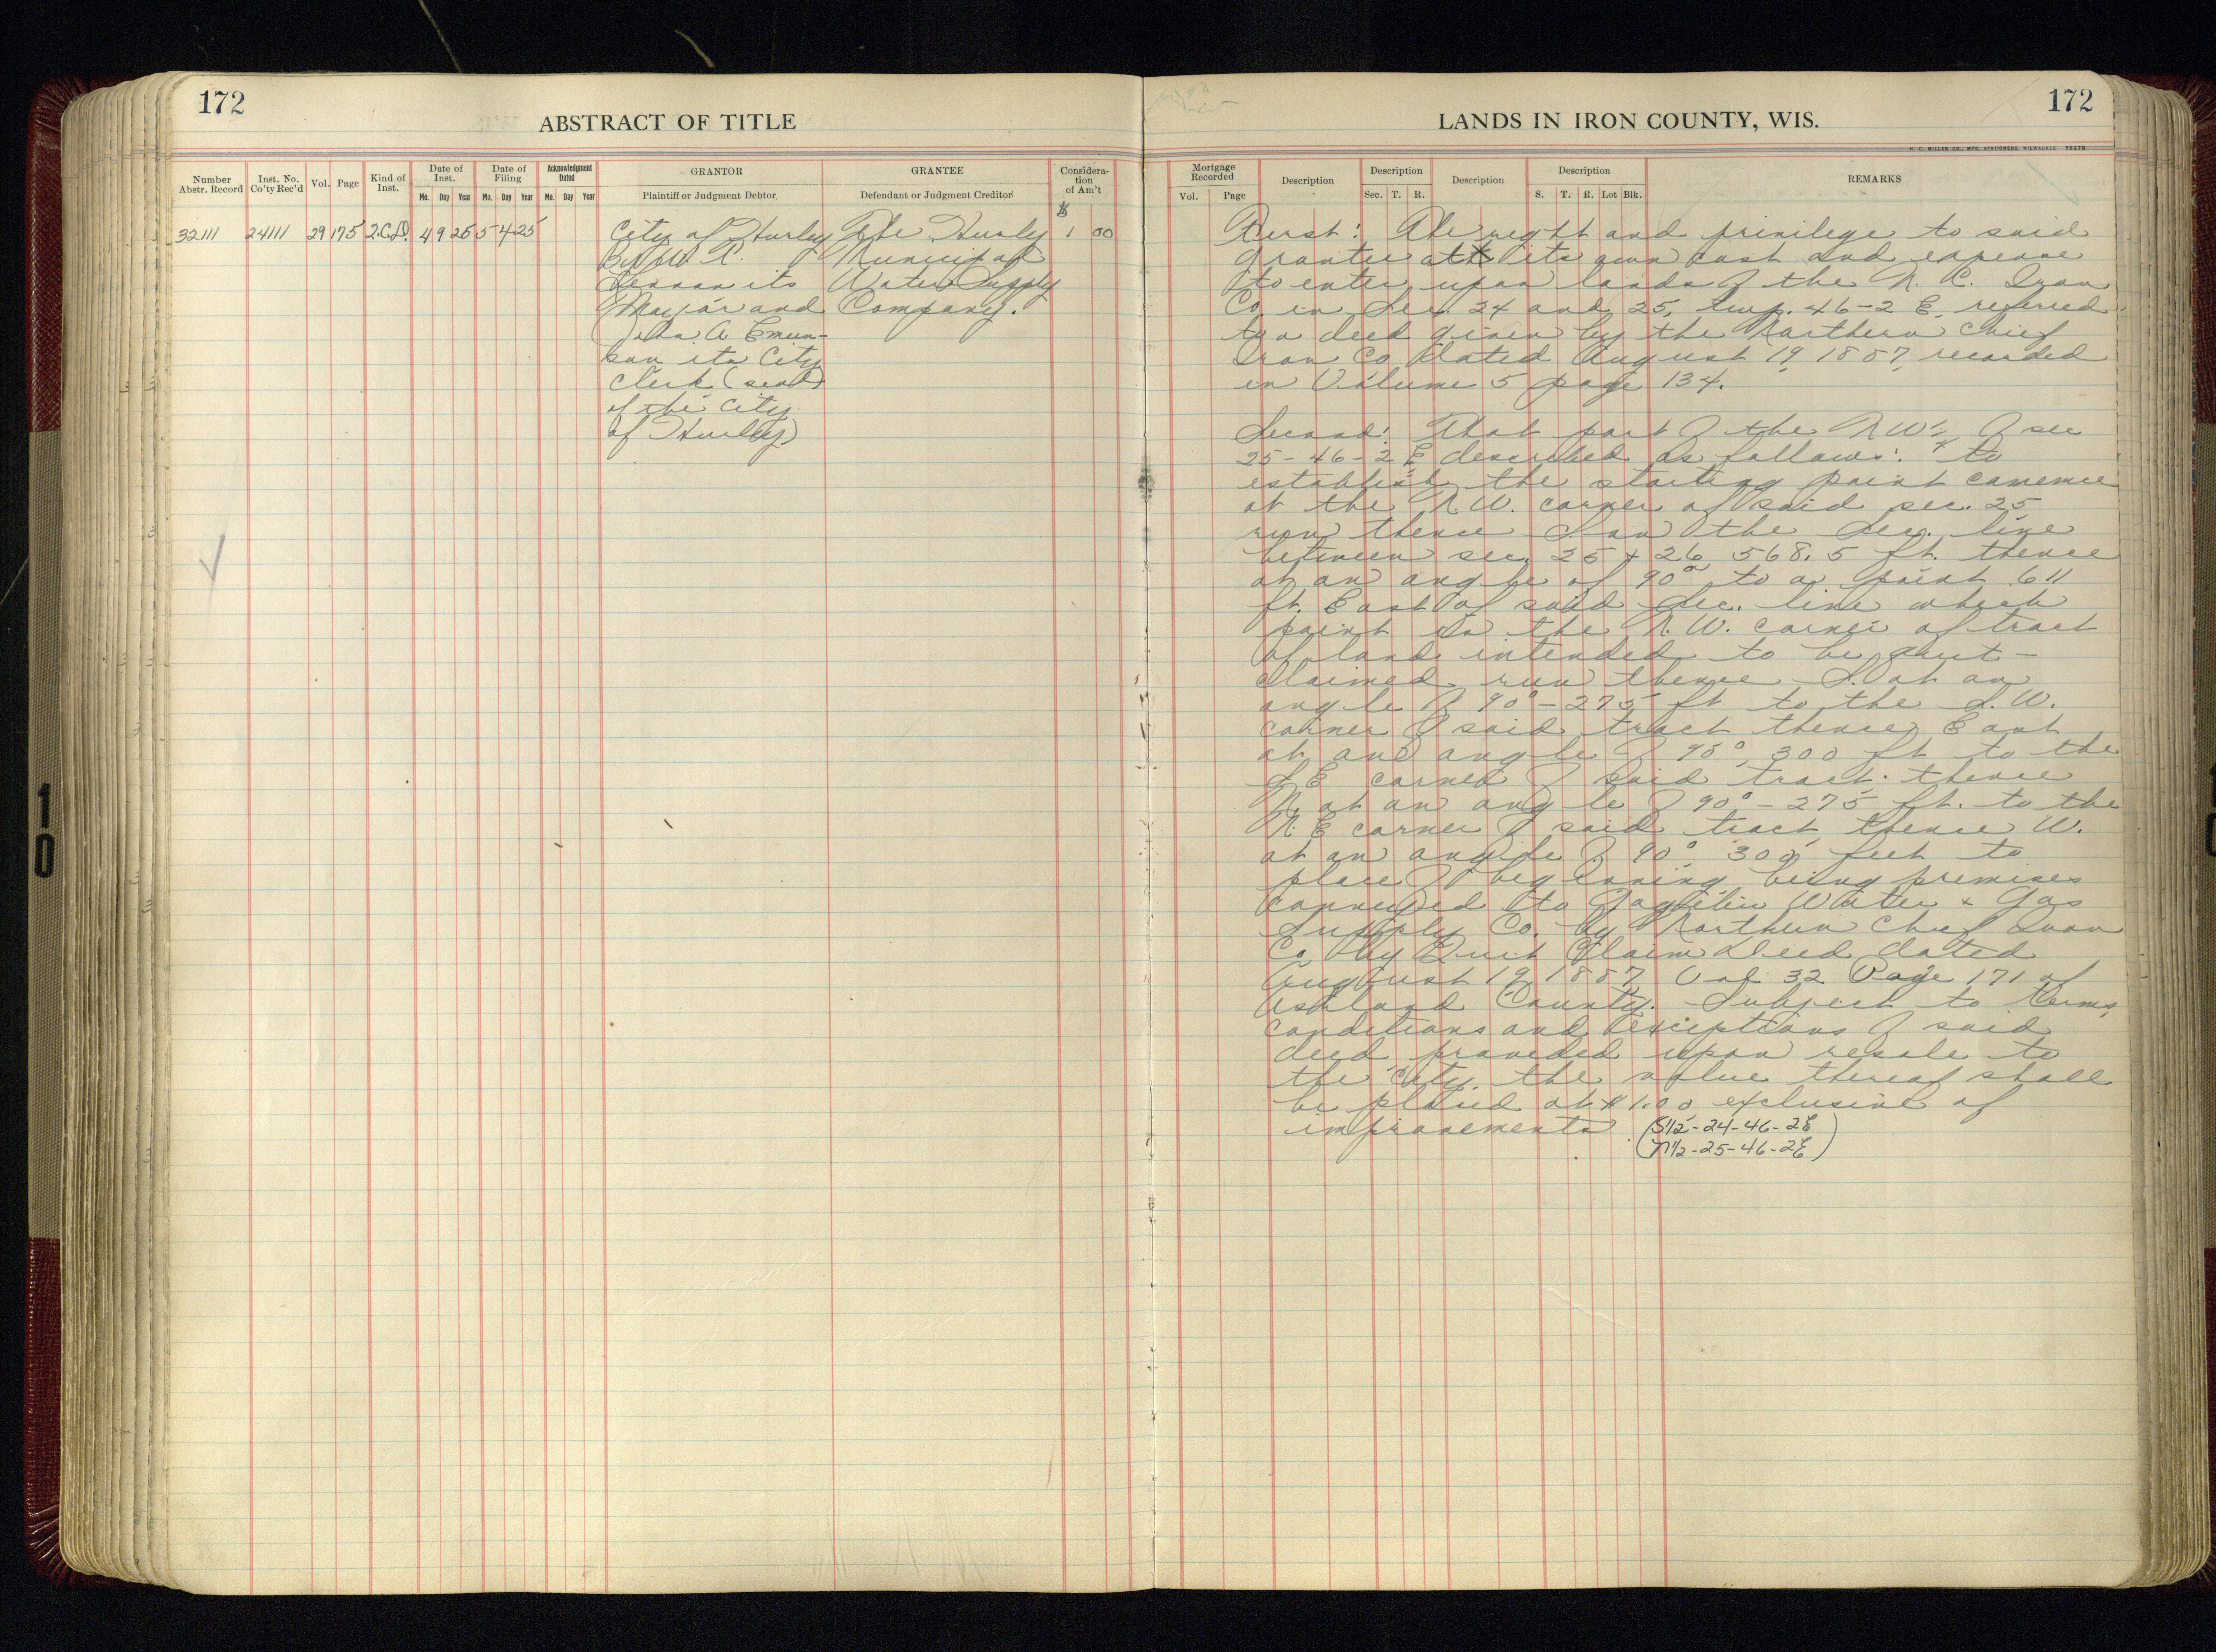 172
ABSTRACT OF TITLE
Number Abstr. Record
Inst. No. Co'ty Rec'd
Vol.
Page
Kind of Inst.
Date of Inst.
Mo. Day Year
Date of Filing
Mo. Day Year
Acknowledgment Dated
Mo. Day Year
GRANTOR
Plaintiff or Judgment Debtor
GRANTEE
Defendant or Judgment Creditor
Consideration of Am't
$
32111 24111 29 175 Q.C.D. 4 9 25 5 4 25
City of Hurley
by W. R.
its
Mayor and
John A. Emun-
son its City
Clerk (seal)
of the City
of Hurley)
The Hurley
Municipal
Water Supply
Company.
1 00
172
LANDS IN IRON COUNTY, WIS.
H. C. MILLER CO., MFG. STATIONERS, MILWAUKEE 76279
Mortgage Recorded
Vol. Page
Description
Description
Sec. T. R.
Description
Description
S. T. R. Lot Blk.
REMARKS
First: The right and privilege to said
grantee at its own cost and expense
to enter upon lands of the N. C. Iron
Co. in Sec. 24 and 25, Twp. 46-2 E. referred
to a deed given by the Northern Chief
Iron Co. dated August 19, 1887, recorded
in Volume 5 page 134.
Second: That part of the NW¼ of sec
25-46-2 E described as follows: to
establish the starting point comence
at the N.W. corner of said sec. 25
run thence S. on the Sec. line
between sec. 25 + 26 568.5 ft. thence
at an angle of 90° to a point 611
ft. East of said Sec. line which
point is the N.W. corner of tract
of land intended to be quit-
claimed run thence S. at an
angle of 90° - 275 ft to the S.W.
corner of said tract thence East
at and angle of 90°, 300 ft to the
S E corner of said tract. thence
N. at an angle of 90° - 275 ft. to the
N. E corner of said tract thence W.
at an angle of 90° 300 feet to
place of beginning being premises
conveyed to Gogebic Water & Gas
Supply Co. by Northern Chief Iron
Co. by Quit Claim Deed dated
August 19, 1887, Vol 32 Page 171 of
Ashland County. Subject to terms,
conditions and exceptions of said
deed provided upon resale to
the City the value thereof shall
be placed at $1.00 exclusive of
improvements. (S½-24-46-2E
(N½-25-46-2E)